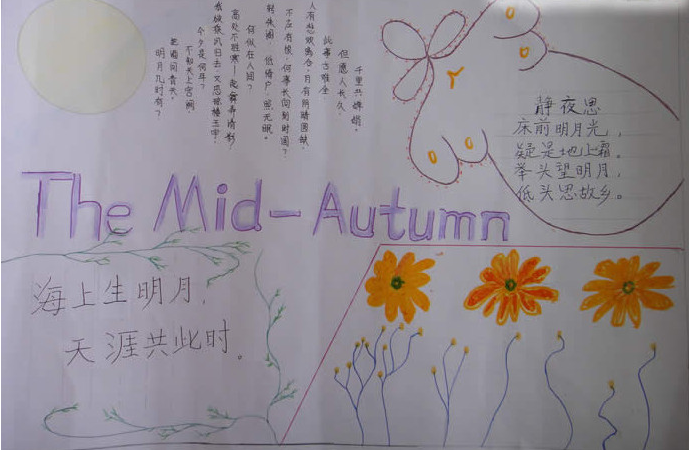 明月几时有？
把酒问青天。
不知天上宫阙，
今夕是何年？
我欲乘风归去，又恐琼楼玉宇，
高处不胜寒，起舞弄清影，
何似在人间？
转朱阁，低绮户，照无眠。
不应有恨，何事长向别时圆？
人有悲欢离合，月有阴晴圆缺，
此事古难全。
但愿人长久，
千里共婵娟。
静夜思
床前明月光，
疑是地上霜。
举头望明月，
低头思故乡。
The Mid-Autumn
海上生明月，
天涯共此时。